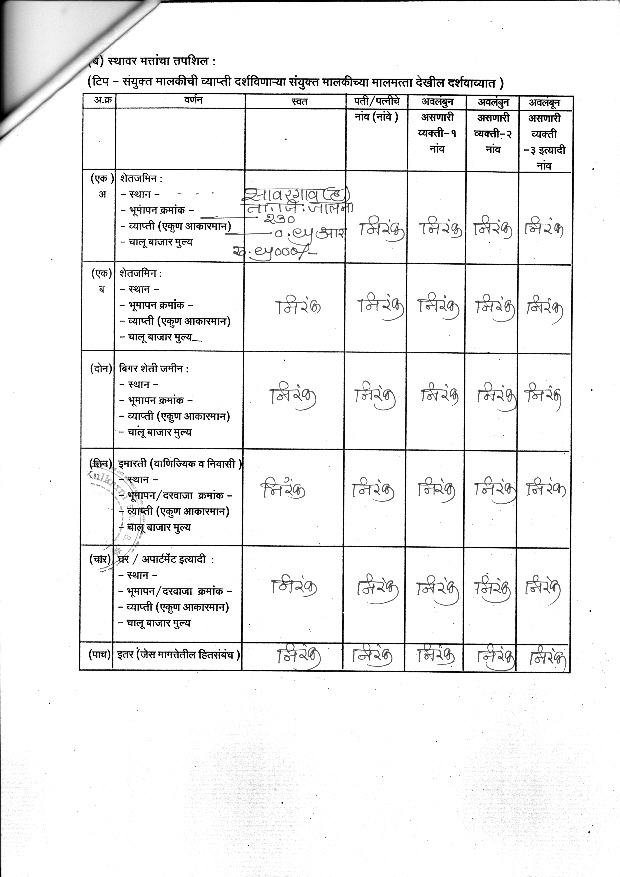 (ब) स्थावर मत्तांचा तपशिल :
(टिप – संयुक्त मालकीची व्याप्ती दर्शविणाऱ्या संयुक्त मालकीच्या मालमत्ता देखील दर्शवाव्यात )
अ.क्र वर्णन स्वत पती/पत्नीचे अवलंबुन अवलंबुन अवलबून
नांव (नांवे ) असणारी असणारी असणारी
व्यक्ती-१ व्यक्ती-२ व्यक्ती
नांव नांव -३ इत्यादी
नांव
(एक ) शेतजमिन :
अ – स्थान – सावरगाव
– भूमापन क्रमांक – ता.जि. जालना
२३०
– व्याप्ती (एकुण आकारमान) ०.६५ आर निरंक निरंक निरंक निरंक
– चालु बाजार मुल्य रु. ६५०००/-
(एक) शेतजमिन :
ब – स्थान –
– भूमापन क्रमांक – निरंक निरंक निरंक निरंक निरंक
– व्याप्ती (एकुण आकारमान)
– चालु बाजार मुल्य
(दोन) बिगर शेती जमीन :
– स्थान – निरंक निरंक निरंक निरंक निरंक
– भूमापन क्रमांक –
– व्याप्ती (एकुण आकारमान)
– चालु बाजार मुल्य
(तिन) इमारती (वाणिज्यिक व निवासी )
– स्थान – निरंक निरंक निरंक निरंक निरंक
– भूमापन/दरवाजा क्रमांक –
– व्याप्ती (एकुण आकारमान)
– चालु बाजार मुल्य
(चार) घर / अपार्टमेंट इत्यादी :
– स्थान – निरंक निरंक निरंक निरंक निरंक
– भूमापन/दरवाजा क्रमांक –
– व्याप्ती (एकुण आकारमान)
– चालु बाजार मुल्य
(पाच) इतर (जेस मागतेतील हितसंबंध ) निरंक निरंक निरंक निरंक निरंक